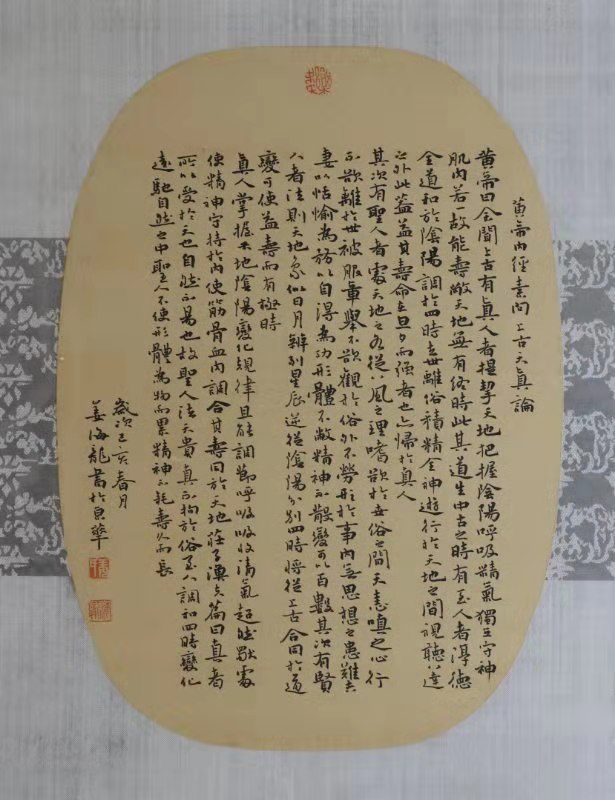 黄帝内經素問上古天真論
黄帝曰余聞上古有真人者提挈天地把握陰陽呼吸精氣獨立守神
肌肉若一故能壽敝天地無有終時此其道生中古之時有至人者淳德
全道和於陰陽調於四時去離俗積精全神遊行於天地之間視聽八達
之外此蓋益其壽命
而強者也亦歸於真人
其次有聖人者處天地之和從八風之理嗜欲於世俗之間無恚嗔之心行
不欲離於世被服章舉不欲觀於俗外不勞形於事内無思想之患
以恬愉為務以自得為功形體不敝精神不散變可以百數其次有賢
人者法則天地象似日月辨列星辰逆從陰陽分别四時將從上古合同於道
變可使益壽而有極時
真人掌握天地陰陽變化規律且能調節呼吸吸收清氣超然獸處
使精神守持於内使筋骨血肉調合其壽同於天地莊子漁父篇曰真者
所以受於天也自然不易也故聖人法天貴真不拘於俗至人調和四時變化
遠馳自然之中聖人不使形體為物而累精神不耗壽久而長
歲次己亥春月
姜海龍書於京華